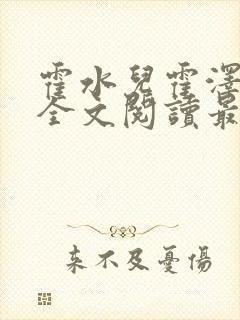 霍水兒霍澤
全文閱讀最
来不及憂傷